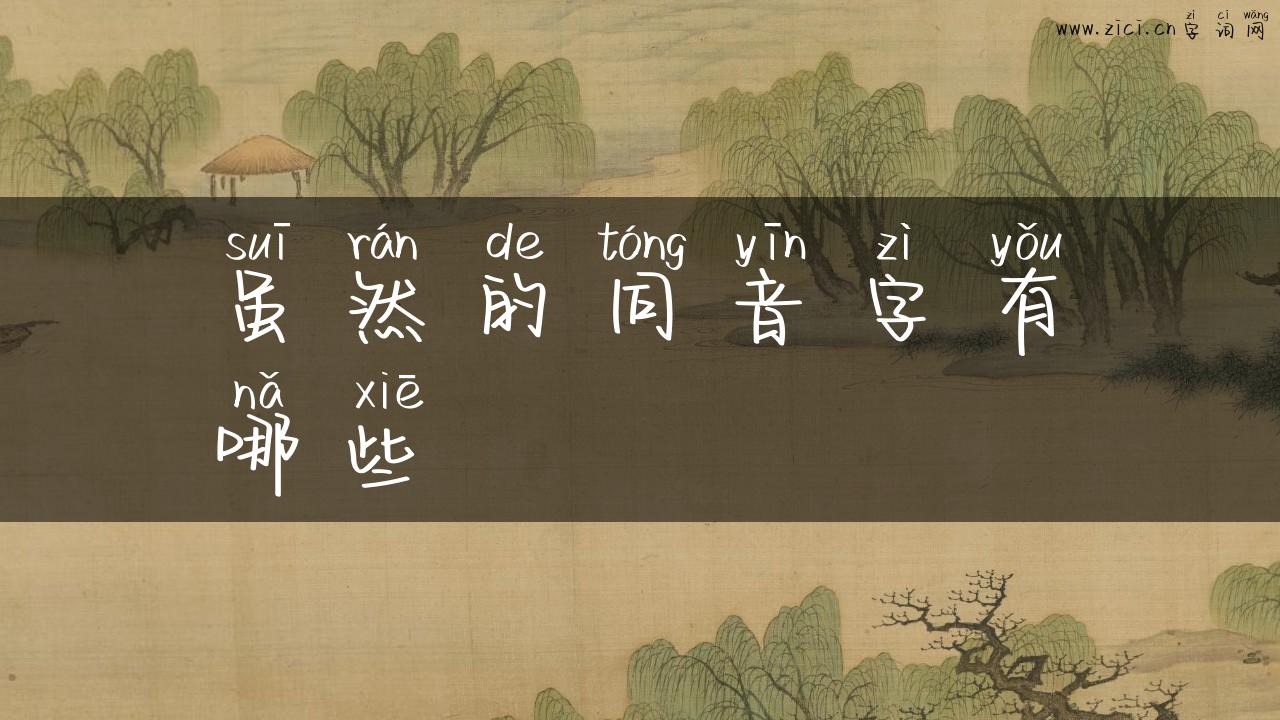 zì cí wǎng
www.zici.cn 字词网
suī rán de tóng yīn zì yǒu
虽然的同音字有
nǎ xiē
哪些